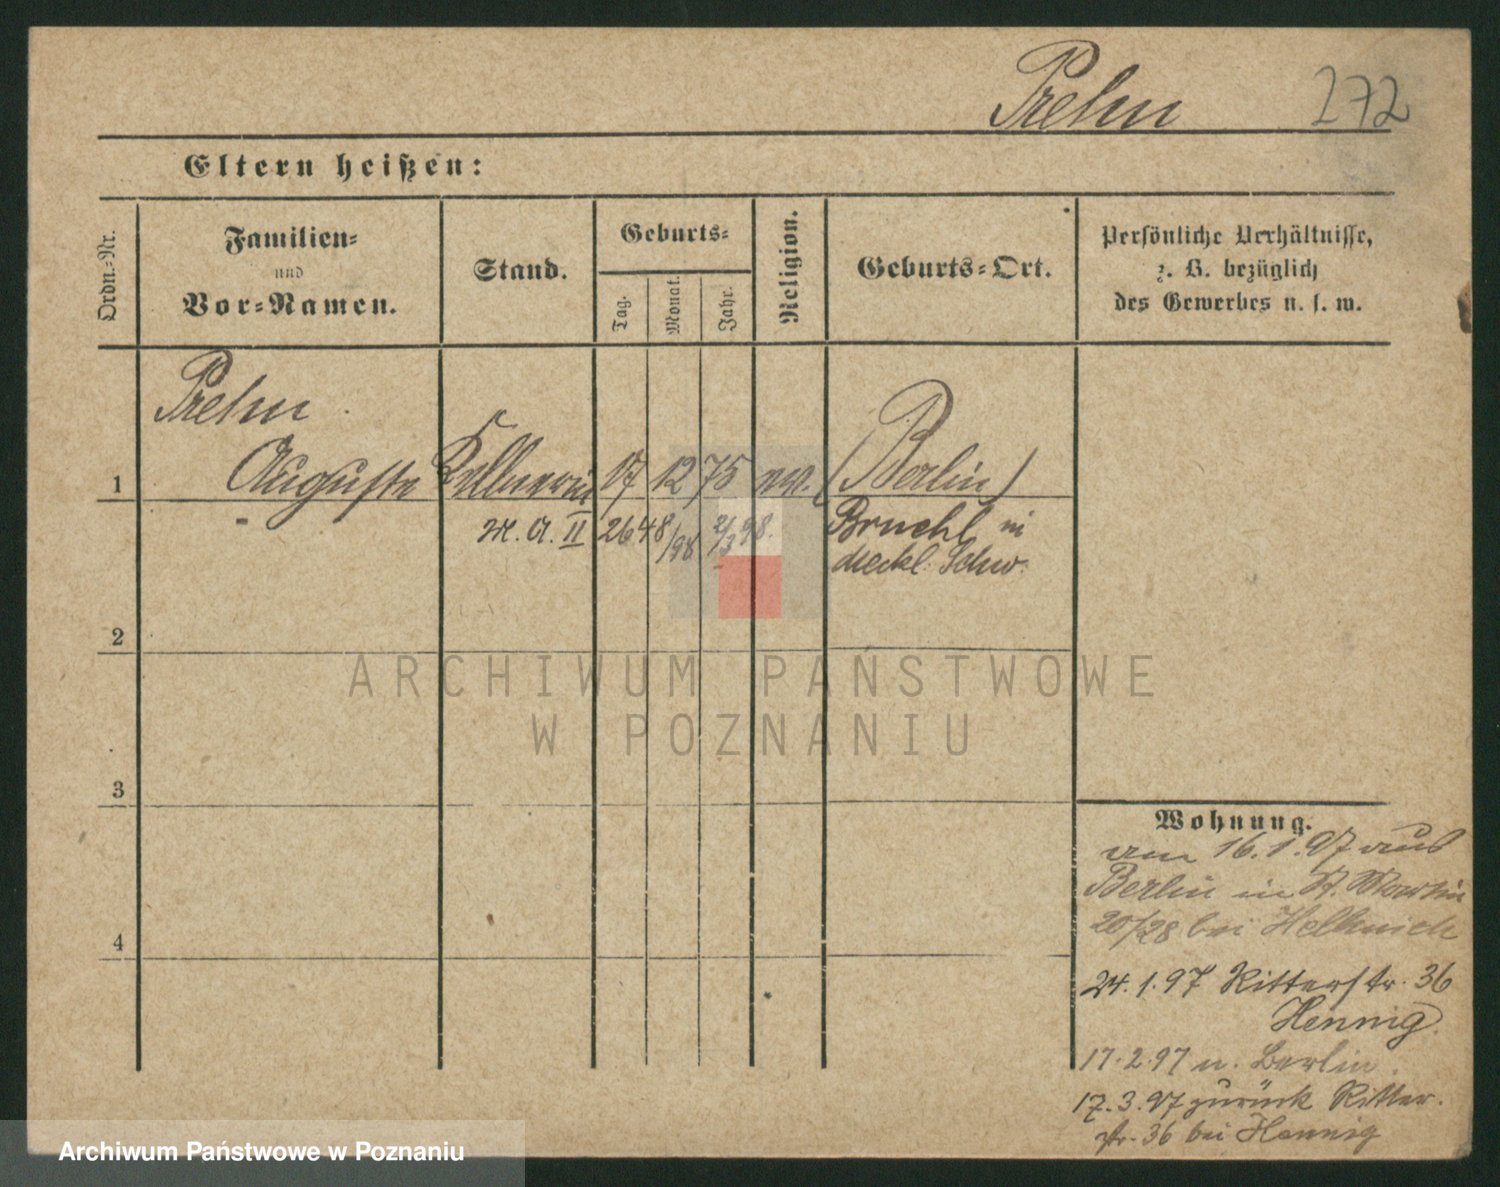 Prehn 272
Eltern heißen:
Ordn.-Nr.
Familien-
und
Vor-Namen.
Stand.
Geburts-
Tag.
Monat.
Jahr.
Religion.
Geburts-Ort.
Persönliche Verhältnisse,
z. B. bezüglich
des Gewerbes u. s. w.
Prehn
1 Auguste Kellnerin 17 12 75 ev. (Berlin)
II 2648/98 2/3 98. Bruehl in
Meckl. Schw.
2
3
4
Wohnung.
am 16.1.97 aus
Berlin in St. Martin
20/28 bei
24.1.97 Ritterstr. 36
Hennig.
17.2.97 n. Berlin.
17.3.97 zurück Ritter-
str. 36 bei Hennig
ARCHIWUM PAŃSTWOWE
W POZNANIU
Archiwum Państwowe w Poznaniu